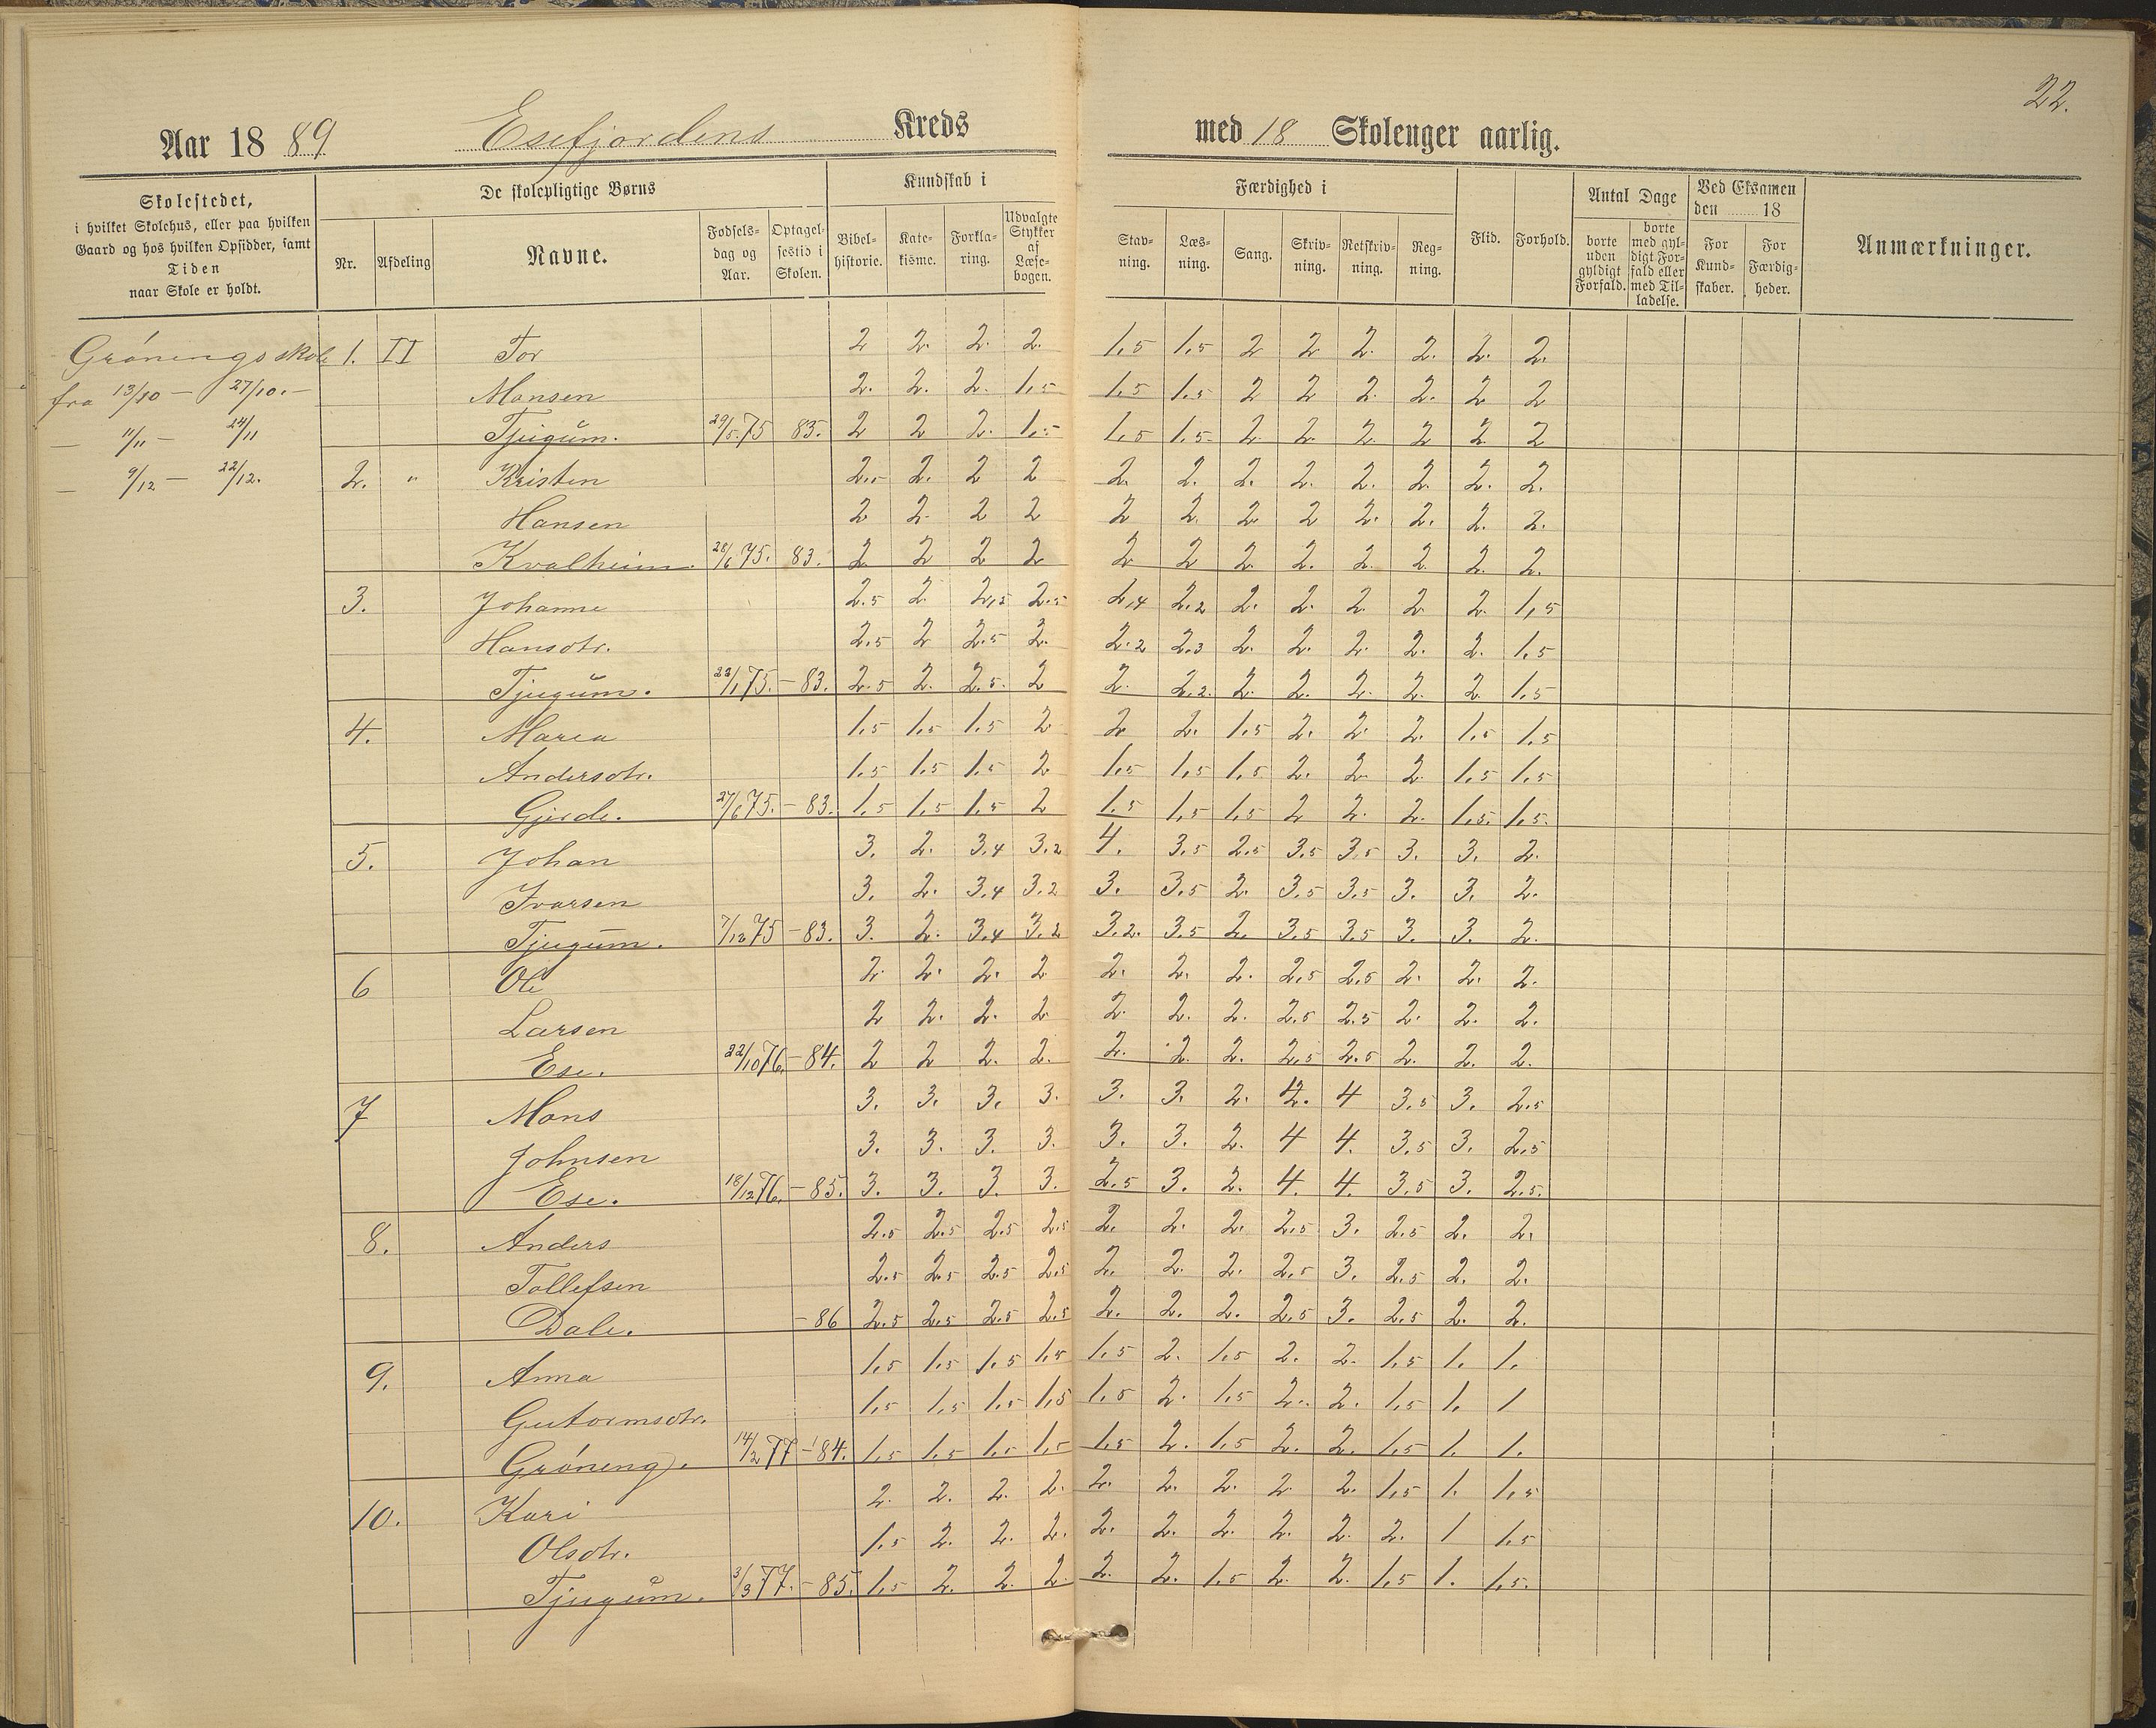 22.
Aar 1889 Esefjordens Kreds med 18 Skolenger aarlig.
Skolestedet,
i hvilket Skolehus, eller paa hvilken
Gaard og hos hvilken Opsidder, samt
Tiden
naar Skole er holdt.
De skolepligtige Børns
Nr. Afdeling Navne. Fødsels-dag og Aar. Optagel-sestid i Skolen.
Kundskab i
Bibel-historie. Kate-kisme. Forkla-ring. Udvalgte Stykker af Læse-bogen.
Færdighed i
Stav-ning. Læs-ning. Sang. Skriv-ning. Retskriv-ning. Reg-ning.
Flid. Forhold.
Antal Dage
borte uden gyldigt Forfald. borte med gyl-digt For-fald eller med Til-ladelse.
Ved Eksamen
den 18
For Kund-skaber. For Færdig-heder.
Anmærkninger.
Gröningsskole 1. II Tor 2 2. 2. 2. 1,5 1,5 2 2 2. 2. 2. 2.
fra 13/10 – 27/10. – Monsen 2. 2. 2. 1,5 1,5 1,5 2 2 2. 2. 2 2
– 11/11 – 24/11 Tjugum. 29/5.75 83. 2 2 2. 1,5 1,5 1,5 2. 2. 2. 2 2. 2
– 9/12 – 22/12. 2. " Kristen 2. 2 2 2. 2. 2. 2. 2. 2. 2. 2.
Hansen 2 2. 2 2 2 2. 2. 2 2. 2. 2. 2.
Kvalheim. 28/6 75. 83. 2. 2 2 2 2 2 2. 2. 2. 2. 2. 2.
3. Johanne 2.5 2 2,5 2.5 2,4 2.2 2. 2. 2. 2. 2. 1,5
Hansdtr. 2.5 2 2.5 2. 2.2 2.3 2. 2. 2. 2. 2. 1.5
Tjugum. 22/1 75. – 83. 2.5 2. 2.5. 2 2. 2.2. 2. 2. 2. 2. 2 1.5
4. Maria 1.5 1.5 1.5 2 2 2. 1.5 2. 2. 2. 1.5 1.5
Andersdtr. 1.5 1.5 1.5 2 1.5 1.5 1.5 2. 2. 2. 1.5 1.5
Gjerde. 27/6 75. – 83. 1.5 1.5 1.5 2 1.5 1.5 1.5 2 2. 2. 1.5. 1.5.
5. Johan 3. 2. 3.4 3.2 4. 3.5 2.5 3.5 3.5 3. 3. 2.
Ivarsen 3. 2. 3.4 3.2 3. 3.5 2. 3.5 3.5 3. 3. 2.
Tjugum. 7/12 75 – 83. 3. 2. 3.4 3.2 3.2. 3.5 2. 3.5 3.5 3. 3. 2.
6 Ole 2. 2. 2. 2 2. 2. 2. 2.5 2.5 2. 2. 2.
Larsen 2 2. 2. 2 2. 2. 2. 2.5 2.5 2. 2. 2.
Ese. 22/10 76. – 84. 2 2 2. 2. 2. 2. 2. 2.5 2.5 2. 2. 2.
7 Mons 3. 3. 3. 3. 3. 3. 2. 4. 4 3.5 3. 2.5
Johnsen 3. 3. 3. 3. 3. 3. 2. 4 4. 3.5 3. 2.5
Ese. 18/12 76. – 85. 3. 3. 3. 3. 2.5 3. 2. 4. 4. 3.5 3. 2.5.
8. Anders 2.5 2.5 2.5 2.5 2. 2. 2. 2.5 3. 2.5 2. 2.
Tollefsen 2.5 2.5 2.5 2.5 2. 2. 2. 2.5 3. 2.5 2. 2.
Dale. – 86 2.5 2.5 2.5 2.5 2. 2. 2. 2.5 3. 2.5 2. 2.
9. Anna 1.5 1.5 1.5 1.5 1.5 2. 1.5 2. 2. 1.5 1. 1.
Gutormsdtr. 1.5 1.5 1.5 1.5 1.5 2. 1.5 2. 2. 1.5 1. 1
Gröneng. 14/2 77 – 84. 1.5 1.5 1.5 1.5 1.5 2. 1.5 2. 2. 1.5 1. 1.
10. Kari 2. 2. 2. 2. 2. 2. 2. 2 2. 1.5 1. 1.5
Olsdtr. 1.5 2. 2. 2. 2. 2. 2. 2. 2. 2. 1 1.5
Tjugum. 3/3 77. – 85. 1.5 2. 2. 2. 2. 2. 1.5 2. 2. 1.5 1. 1.5.